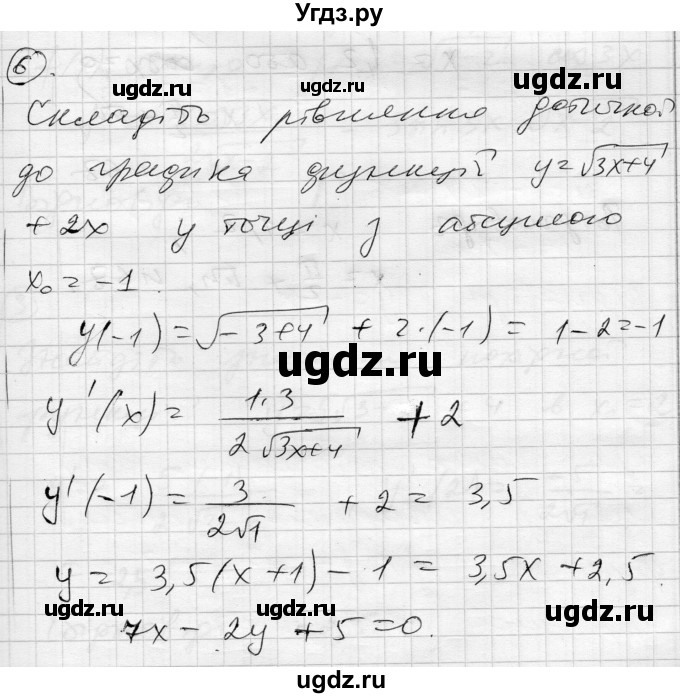 Угдз.ру
6).
Складіть рівняння дотичной
до графика функції y=√(3x+4)
+2x у точці з абсцисою
x₀ = -1.
y(-1) = √(-3+4) + 2·(-1) = 1-2=-1
y'(x) = (1·3)/(2√(3x+4)) + 2
y'(-1) = 3/(2√1) + 2 = 3,5
y = 3,5(x+1) - 1 = 3,5x + 2,5.
7x - 2y + 5 = 0.
ugdz.ru
ugdz.ru
ugdz.ru
ugdz.ru
ugdz.ru
ugdz.ru
ugdz.ru
ugdz.ru
ugdz.ru
ugdz.ru